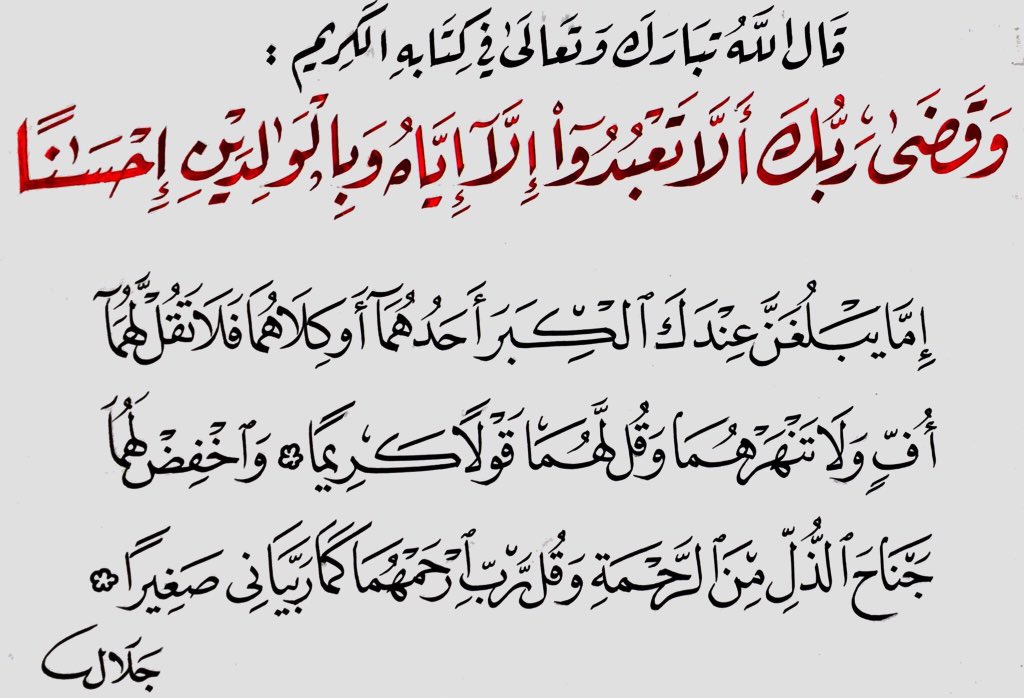 قَالَ اللَّهُ تَبَارَكَ وَتَعَالَىٰ فِي كِتَابِهِ الْكَرِيمِ :
وَقَضَىٰ رَبُّكَ أَلَّا تَعْبُدُوٓا۟ إِلَّآ إِيَّاهُ وَبِالْوَٰلِدَيْنِ إِحْسَٰنًا
إِمَّا يَبْلُغَنَّ عِنْدَكَ ٱلْكِبَرَ أَحَدُهُمَآ أَوْ كِلَاهُمَا فَلَا تَقُلْ لَّهُمَآ
أُفٍّ وَلَا تَنْهَرْهُمَا وَقُل لَّهُمَا قَوْلًا كَرِيمًا ۞ وَٱخْفِضْ لَهُمَا
جَنَاحَ ٱلذُّلِّ مِنَ ٱلرَّحْمَةِ وَقُل رَّبِّ ٱرْحَمْهُمَا كَمَا رَبَّيَانِى صَغِيرًا ۞
جَلَال